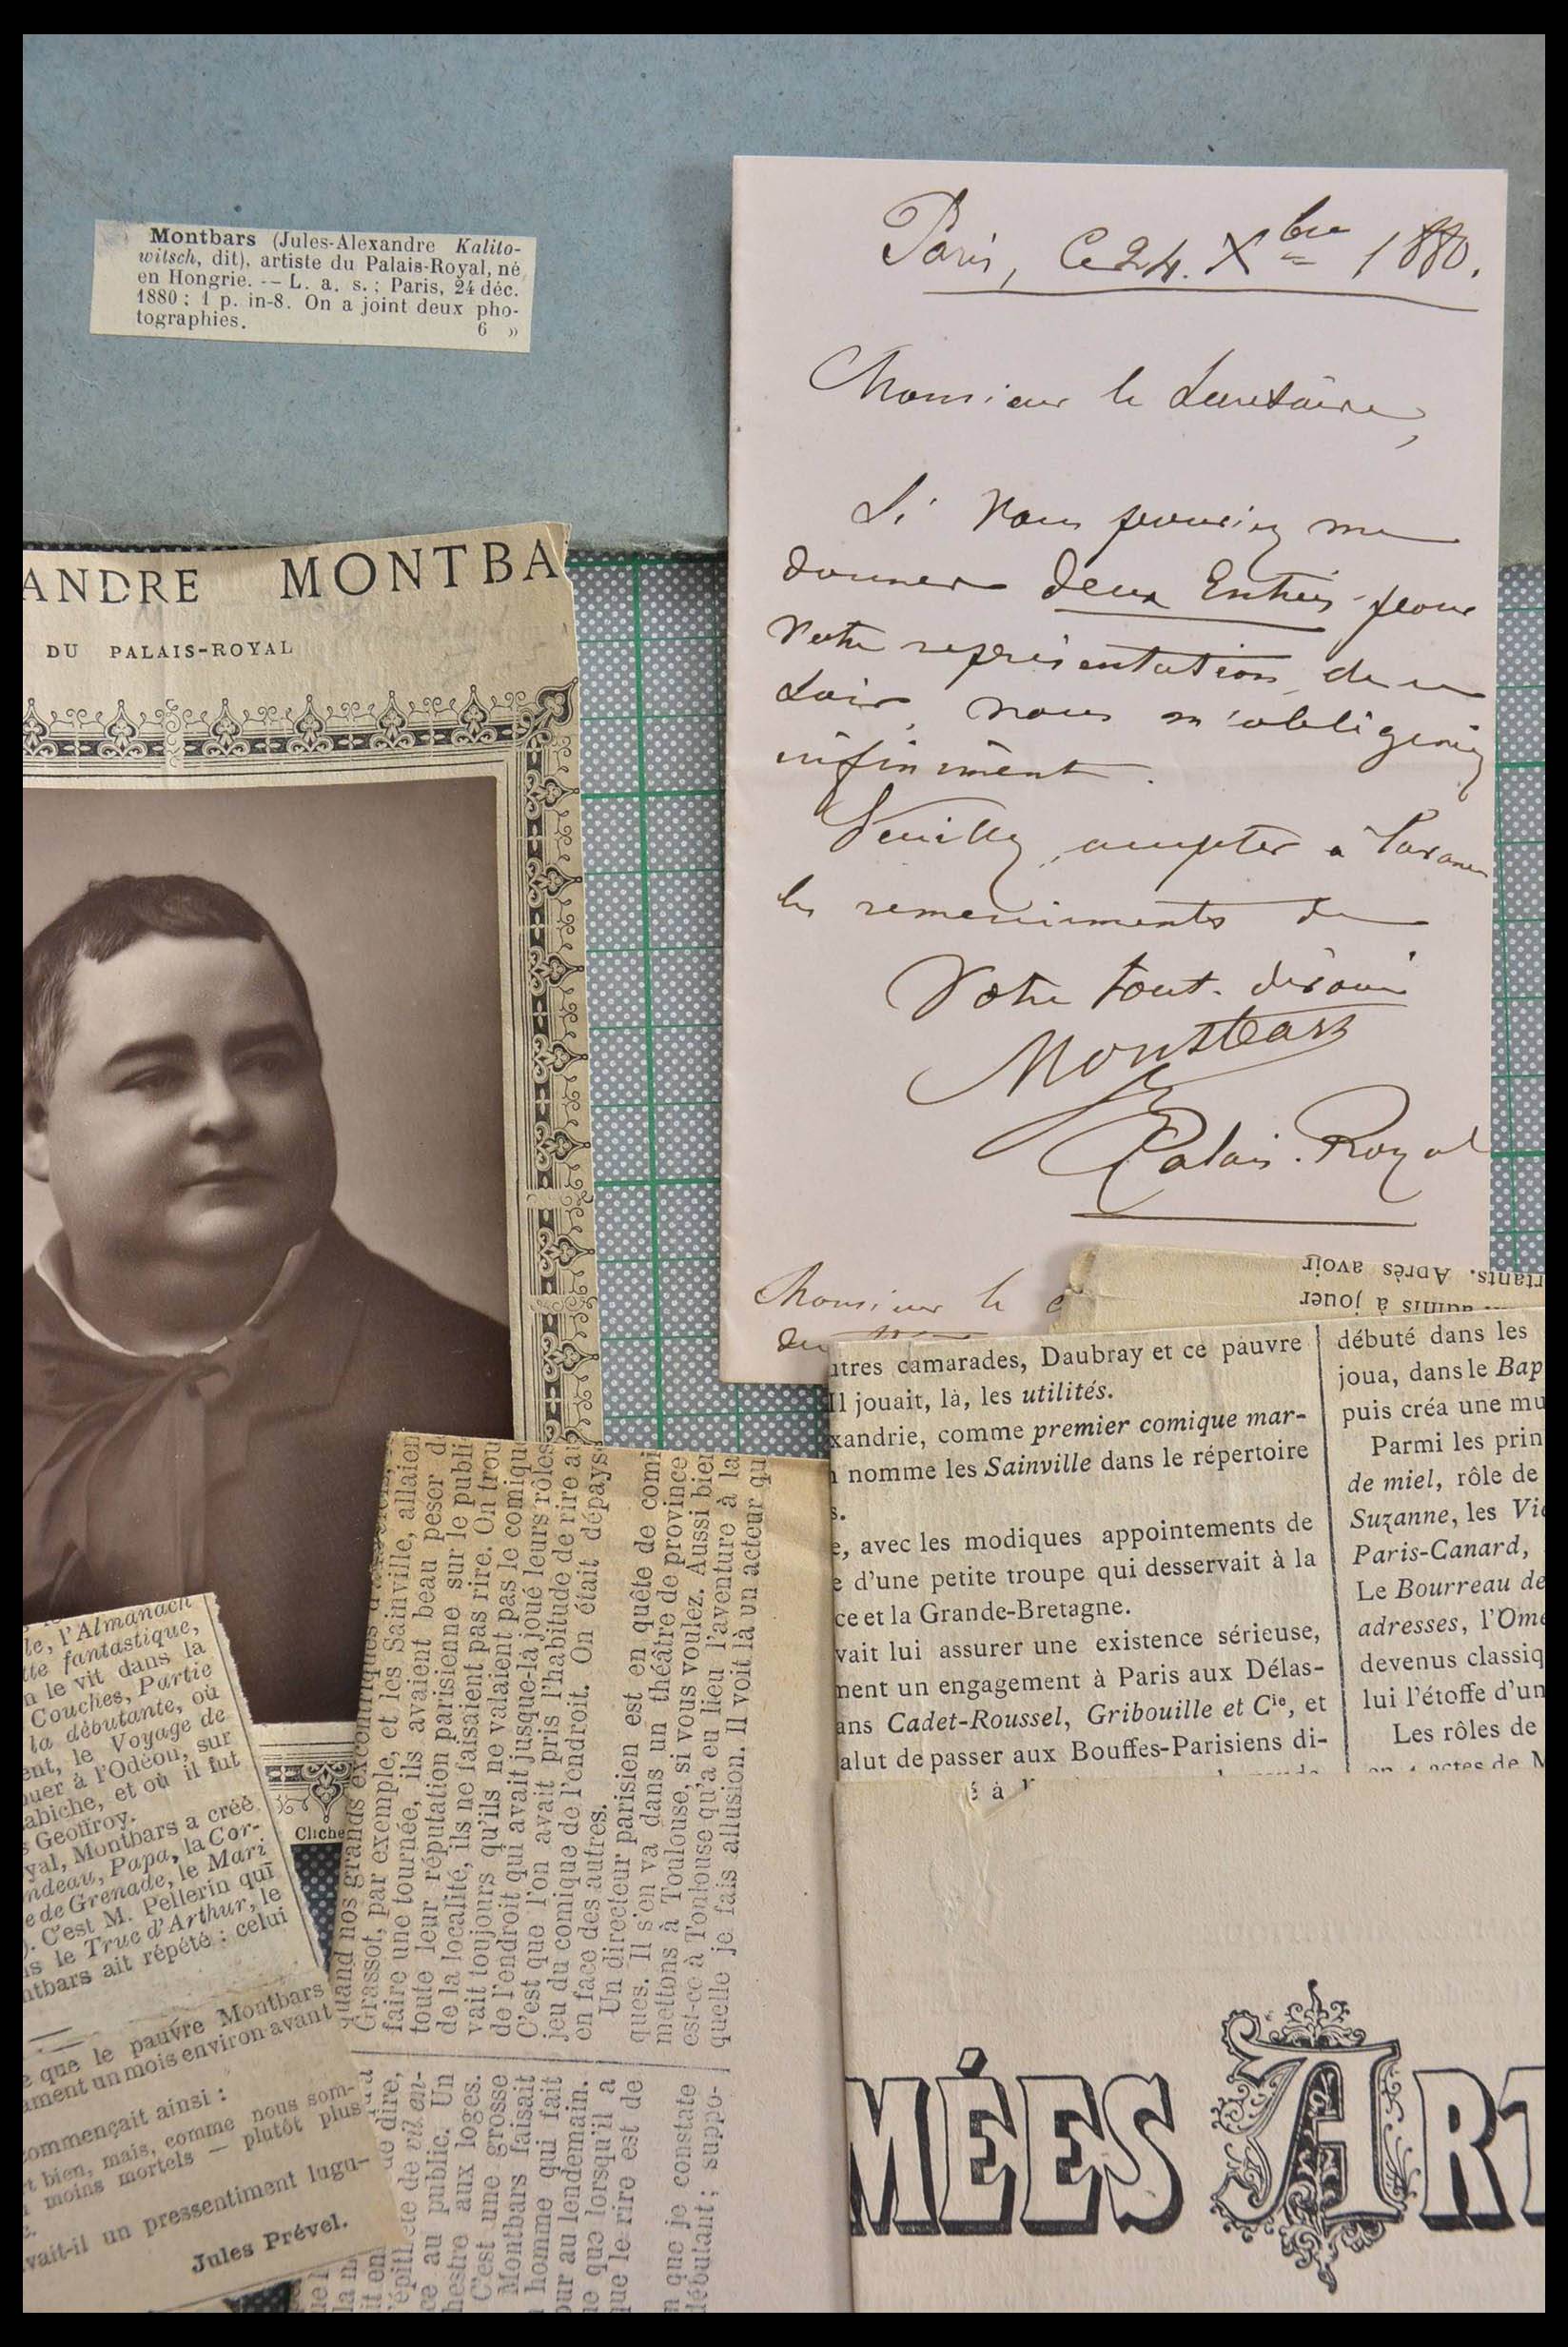 Montbars (Jules-Alexandre Kalito-
witsch, dit), artiste du Palais-Royal, né
en Hongrie. -- L. a. s. ; Paris, 24 déc.
1880 ; 1 p. in-8. On a joint deux pho-
tographies. 6 »
Paris, Ce 24. Xbre 1880.
Monsieur le Secretaire,
Si vous pouviez me
donner deux Entrées pour
votre représentation de ce
soir, vous m'obligeriez
infiniment.
Veuillez, accepter à l'avance
les remerciements de
Votre tout dévoué
Montbars
Palais-Royal
Monsieur le
du
ANDRE MONTBA
DU PALAIS-ROYAL
Cliché
rtants. Après avoir
admis à jouer
utres camarades, Daubray et ce pauvre
Il jouait, là, les utilités.
xandrie, comme premier comique mar-
n nomme les Sainville dans le répertoire
s.
e, avec les modiques appointements de
e d'une petite troupe qui desservait à la
ce et la Grande-Bretagne.
vait lui assurer une existence sérieuse,
ment un engagement à Paris aux Délas-
ans Cadet-Roussel, Gribouille et Cie, et
alut de passer aux Bouffes-Parisiens di-
débuté dans les
joua, dans le Bap
puis créa une mu
Parmi les prin
de miel, rôle de
Suzanne, les Vi
Paris-Canard,
Le Bourreau de
adresses, l'Ome
devenus classiq
lui l'étoffe d'un
Les rôles de
en 4 actes de M
é à
quand nos grands excentriques
Grassot, par exemple, et les Sainville, allaien
faire une tournée, ils avaient beau peser d
toute leur réputation parisienne sur le publi
de la localité, ils ne faisaient pas rire. On trou
vait toujours qu'ils ne valaient pas le comiqu
de l'endroit qui avait jusque-là joué leurs rôles
C'est que l'on avait pris l'habitude de rire au
jeu du comique de l'endroit. On était dépays
en face des autres.
Un directeur parisien est en quête de comi
ques. Il s'en va dans un théâtre de province
mettons à Toulouse, si vous voulez. Aussi bien
est-ce à Toulouse qu'a eu lieu l'aventure à la
quelle je fais allusion. Il voit là un acteur qu
de dire,
de vil en-
ce au public. Un
hestre aux loges.
C'est une grosse
Montbars faisait
homme qui fait
our au lendemain.
ue que lorsqu'il a
que le rire est de
n que je constate
débutant ; suppo-
le, l'Almanach
tte fantastique,
n le vit dans la
Couches, Partie
la débutante, où
ent, le Voyage de
ouer à l'Odéon, sur
abiche, et où il fut
s Geoffroy.
yal, Montbars a créé
ndeau, Papa, la Cor-
e de Grenade, le Mari
). C'est M. Pellerin qui
is le Truc d'Arthur, le
ntbars ait répété : celui
e que le pauvre Montbars
ament un mois environ avant
commençait ainsi :
t bien, mais, comme nous som-
moins mortels — plutôt plus
vait-il un pressentiment lugu-
Jules Prével.
MÉES ART